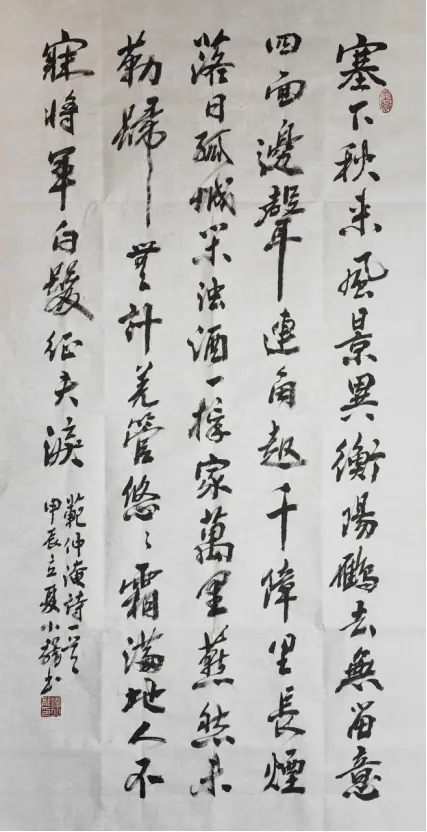 塞下秋来風景異衡陽鴈去無留意
四面邊聲連角起千障里長煙
落日孤城閉浊酒一杯家萬里燕然未
勒歸無計羌管悠〻霜滿地人不
寐將軍白髮征夫淚
範仲淹詩一首
甲辰立夏小书